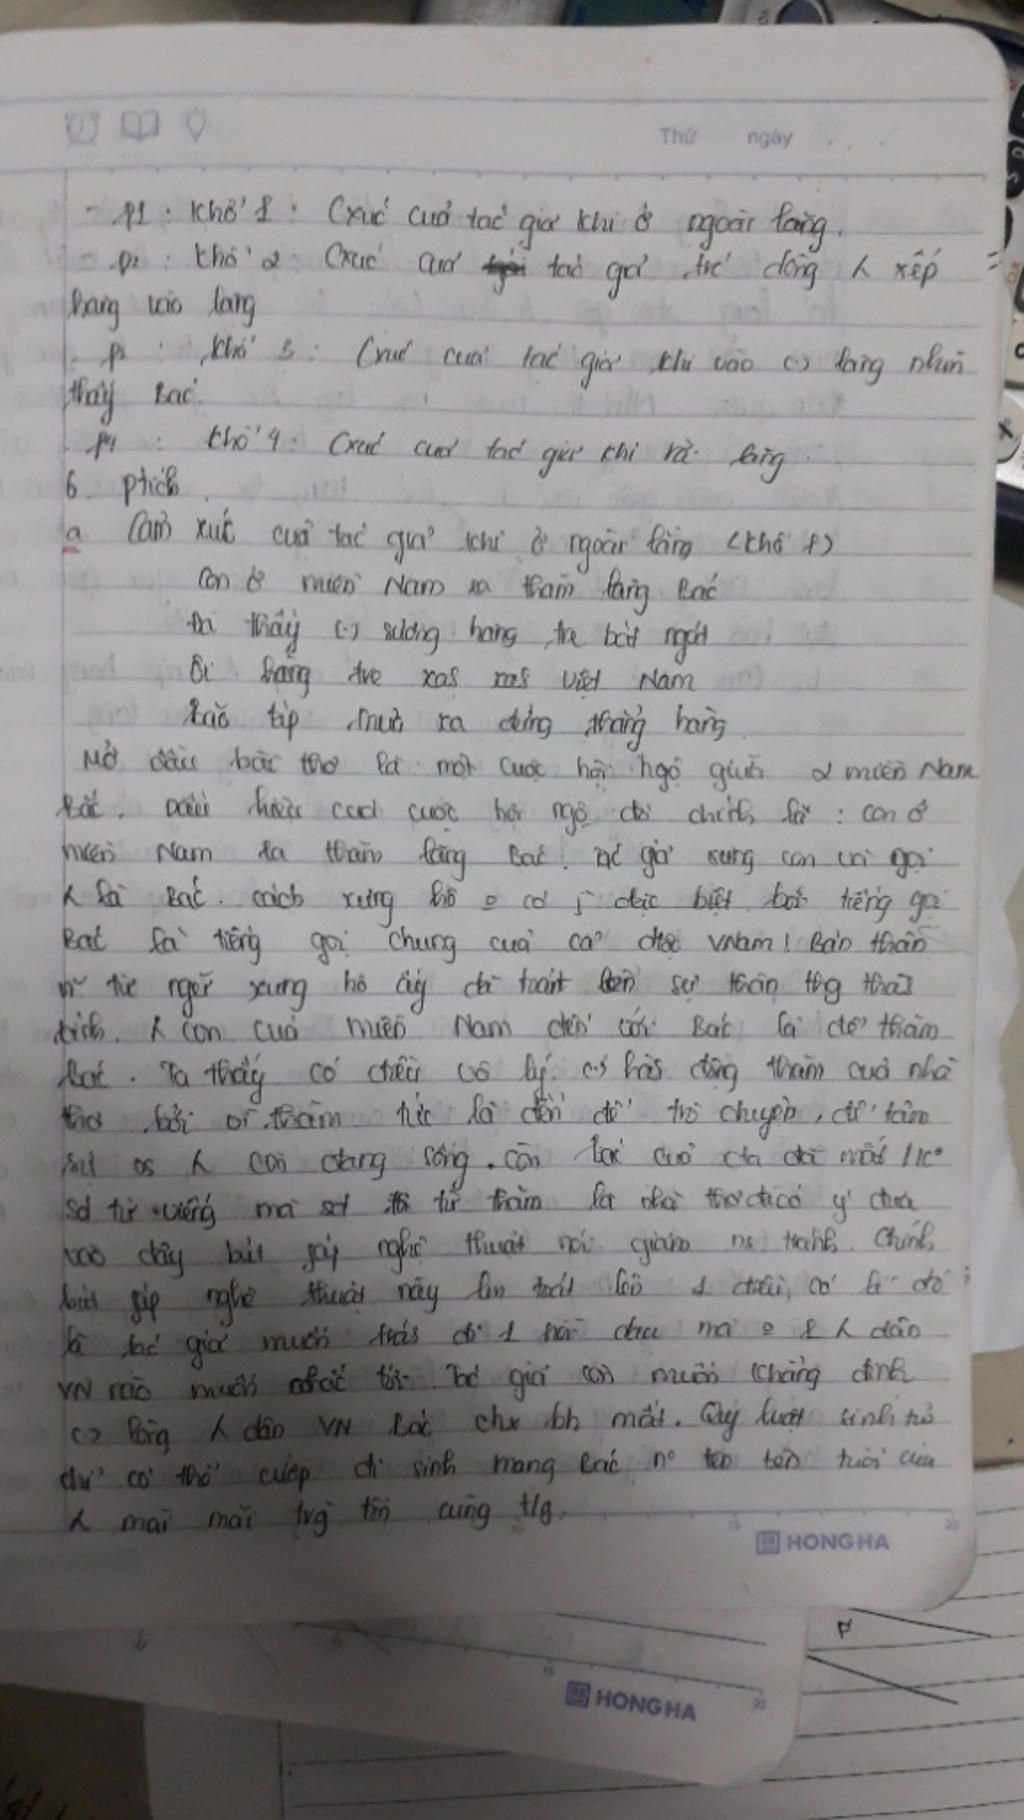 Thứ ngày
- p1 : khổ 1 : Cxúc của tác giả khi ở ngoài lăng.
- p2 : khổ 2 : Cxúc của tác giả trc dòng ʎ xếp
hàng vào lăng
- p3 : khổ 3 : Cxúc của tác giả khi vào (-) lăng nhìn
thấy Bác.
p4 : khổ 4 : Cxúc của tác giả khi rời lăng.
6. ptích
a Cảm xúc của tác giả khi ở ngoài lăng (khổ 1)
Con ở miền Nam ra thăm lăng Bác
Đã thấy (-) sương hàng tre bát ngát
Ôi hàng tre xanh xanh Việt Nam
Bão táp mưa sa đứng thẳng hàng
Mở đầu bài thơ là một cuộc hội ngộ giữa 2 miền Nam
Bắc. hiệu của cuộc hội ngộ đó chính là : con ở
miền Nam ra thăm lăng Bác. tác giả xưng con và gọi
ʎ là Bác. cách xưng hô có đặc biệt bởi tiếng gọi
Bác là tiếng gọi chung của cả Vnam! Bản thân
từ ngữ xưng hô ấy đã toát lên sự thân thg
tình. ʎ con của miền Nam đến với Bác là để thăm
Bác. Ta thấy có điều vô lý (-) động thăm của nhà
thơ bởi vì thăm tức là đến để trò chuyện, để tâm
sự ʎ còn đang sống. còn Bác của cta đã mất
sd từ viếng mà sd từ thăm là nhà thơ đã có ý đưa
vào đây bút pháp nghệ thuật nói giảm tránh. Chính
bút pháp nghệ thuật này làm toát lên 1 điều, có lẽ đó
là tác giả muốn đi 1 nỗi đau mà ʎ dân
VN nào muốn nhắc tới. Tác giả còn muốn khẳng định
(-) lòng ʎ dân VN Bác chưa bh mất. Quy luật sinh tử
chỉ có thể cướp đi sinh mạng Bác tên tuổi của
ʎ mãi mãi trg tồn cùng t/g.
HONG HA
HONG HA